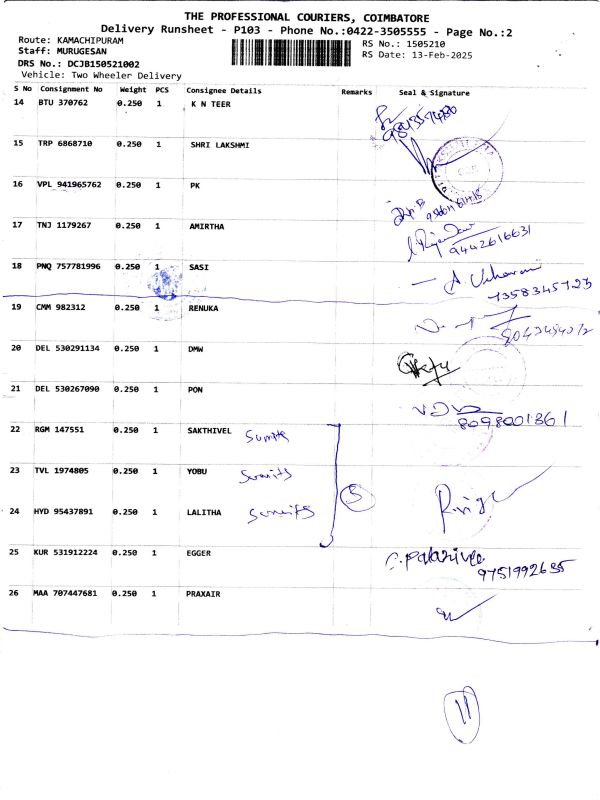 THE PROFESSIONAL COURIERS, COIMBATORE
Delivery Runsheet - P103 - Phone No.:0422-3505555 - Page No.:2
Route: KAMACHIPURAM
Staff: MURUGESAN
DRS No.: DCJB150521002
Vehicle: Two Wheeler Delivery
RS No.: 1505210
RS Date: 13-Feb-2025
S No Consignment No Weight PCS Consignee Details Remarks Seal & Signature
14 BTU 370762 0.250 1 K N TEER
15 TRP 6868710 0.250 1 SHRI LAKSHMI
16 VPL 941965762 0.250 1 PK
17 TNJ 1179267 0.250 1 AMIRTHA
9442616631
18 PNQ 757781996 0.250 1 SASI
7358345123
19 CMM 982312 0.250 1 RENUKA
20 DEL 530291134 0.250 1 DMW
21 DEL 530267090 0.250 1 PON
8098001361
22 RGM 147551 0.250 1 SAKTHIVEL
23 TVL 1974805 0.250 1 YOBU
24 HYD 95437891 0.250 1 LALITHA
25 KUR 531912224 0.250 1 EGGER
9751992635
26 MAA 707447681 0.250 1 PRAXAIR
11